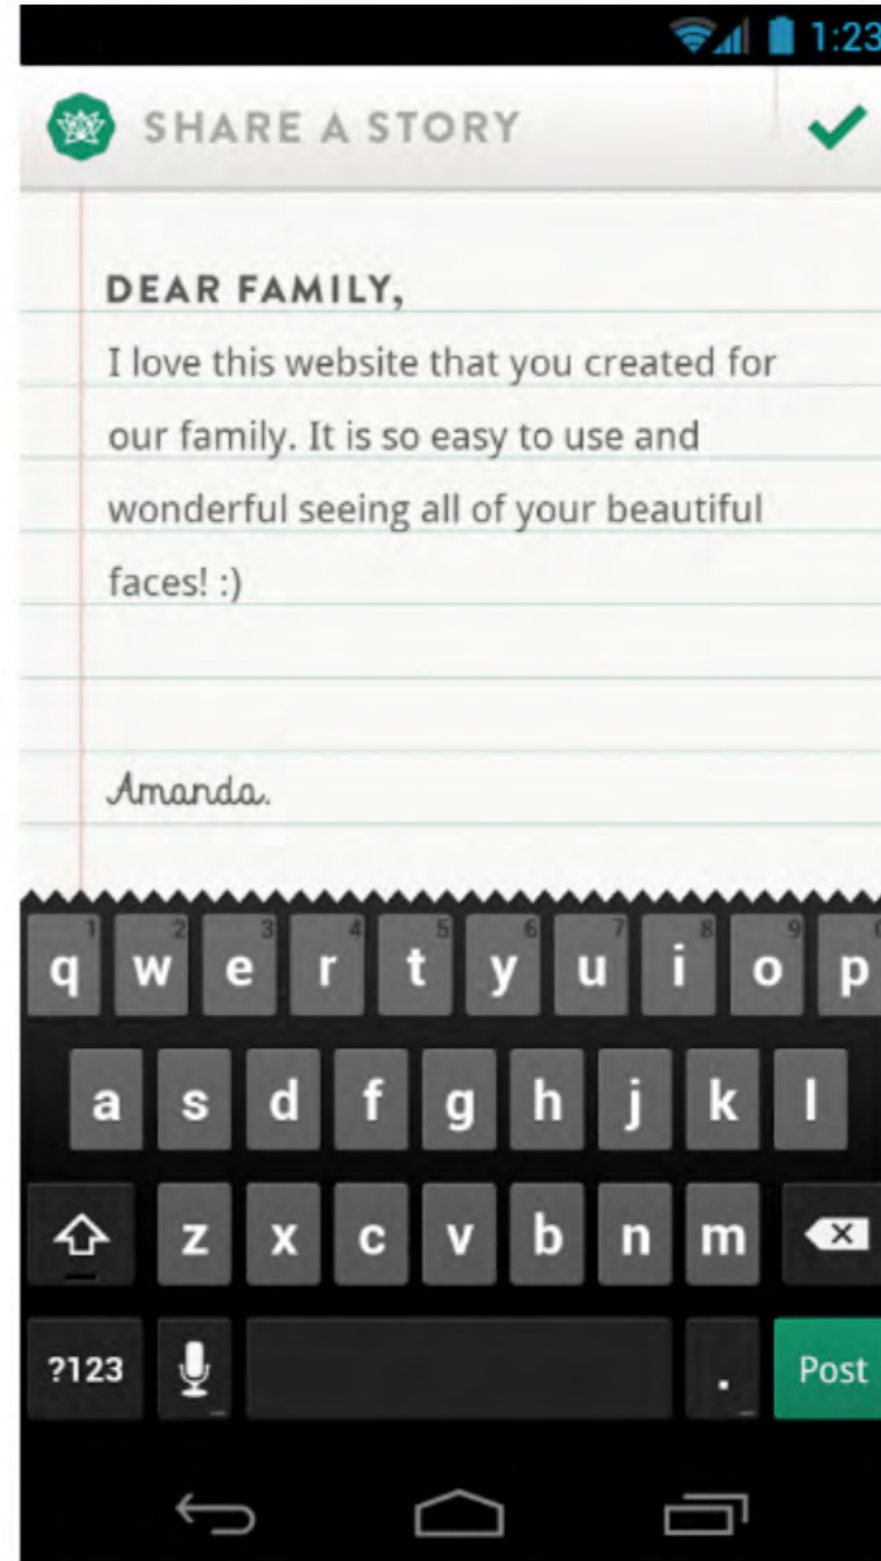 1:23
SHARE A STORY
DEAR FAMILY,
I love this website that you created for
our family. It is so easy to use and
wonderful seeing all of your beautiful
faces! :)
Amanda.
1 2 3 4 5 6 7 8 9
q w e r t y u i o p
a s d f g h j k l
z x c v b n m
?123 . Post